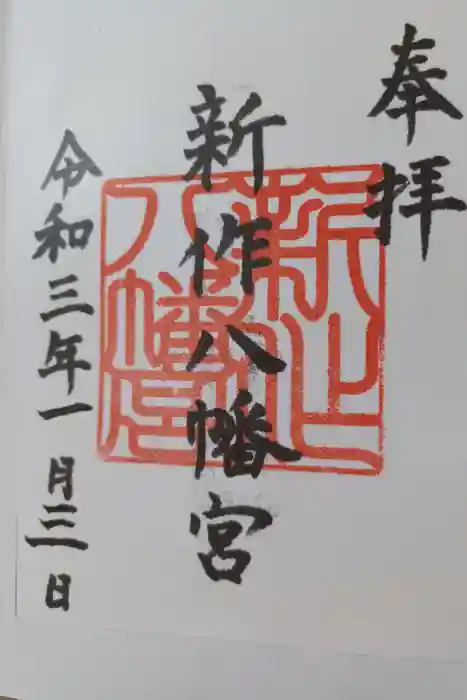 奉拝
新作八幡宮
令和三年一月三日